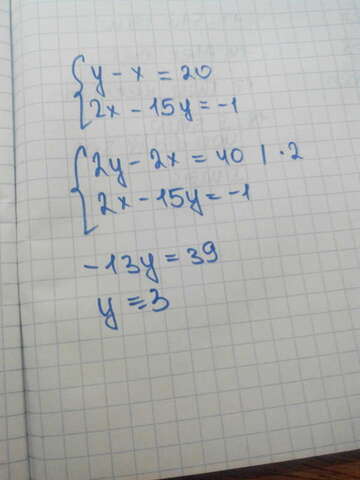 y - x = 20
2x - 15y = -1
2y - 2x = 40 | · 2
2x - 15y = -1
-13y = 39
y = 3